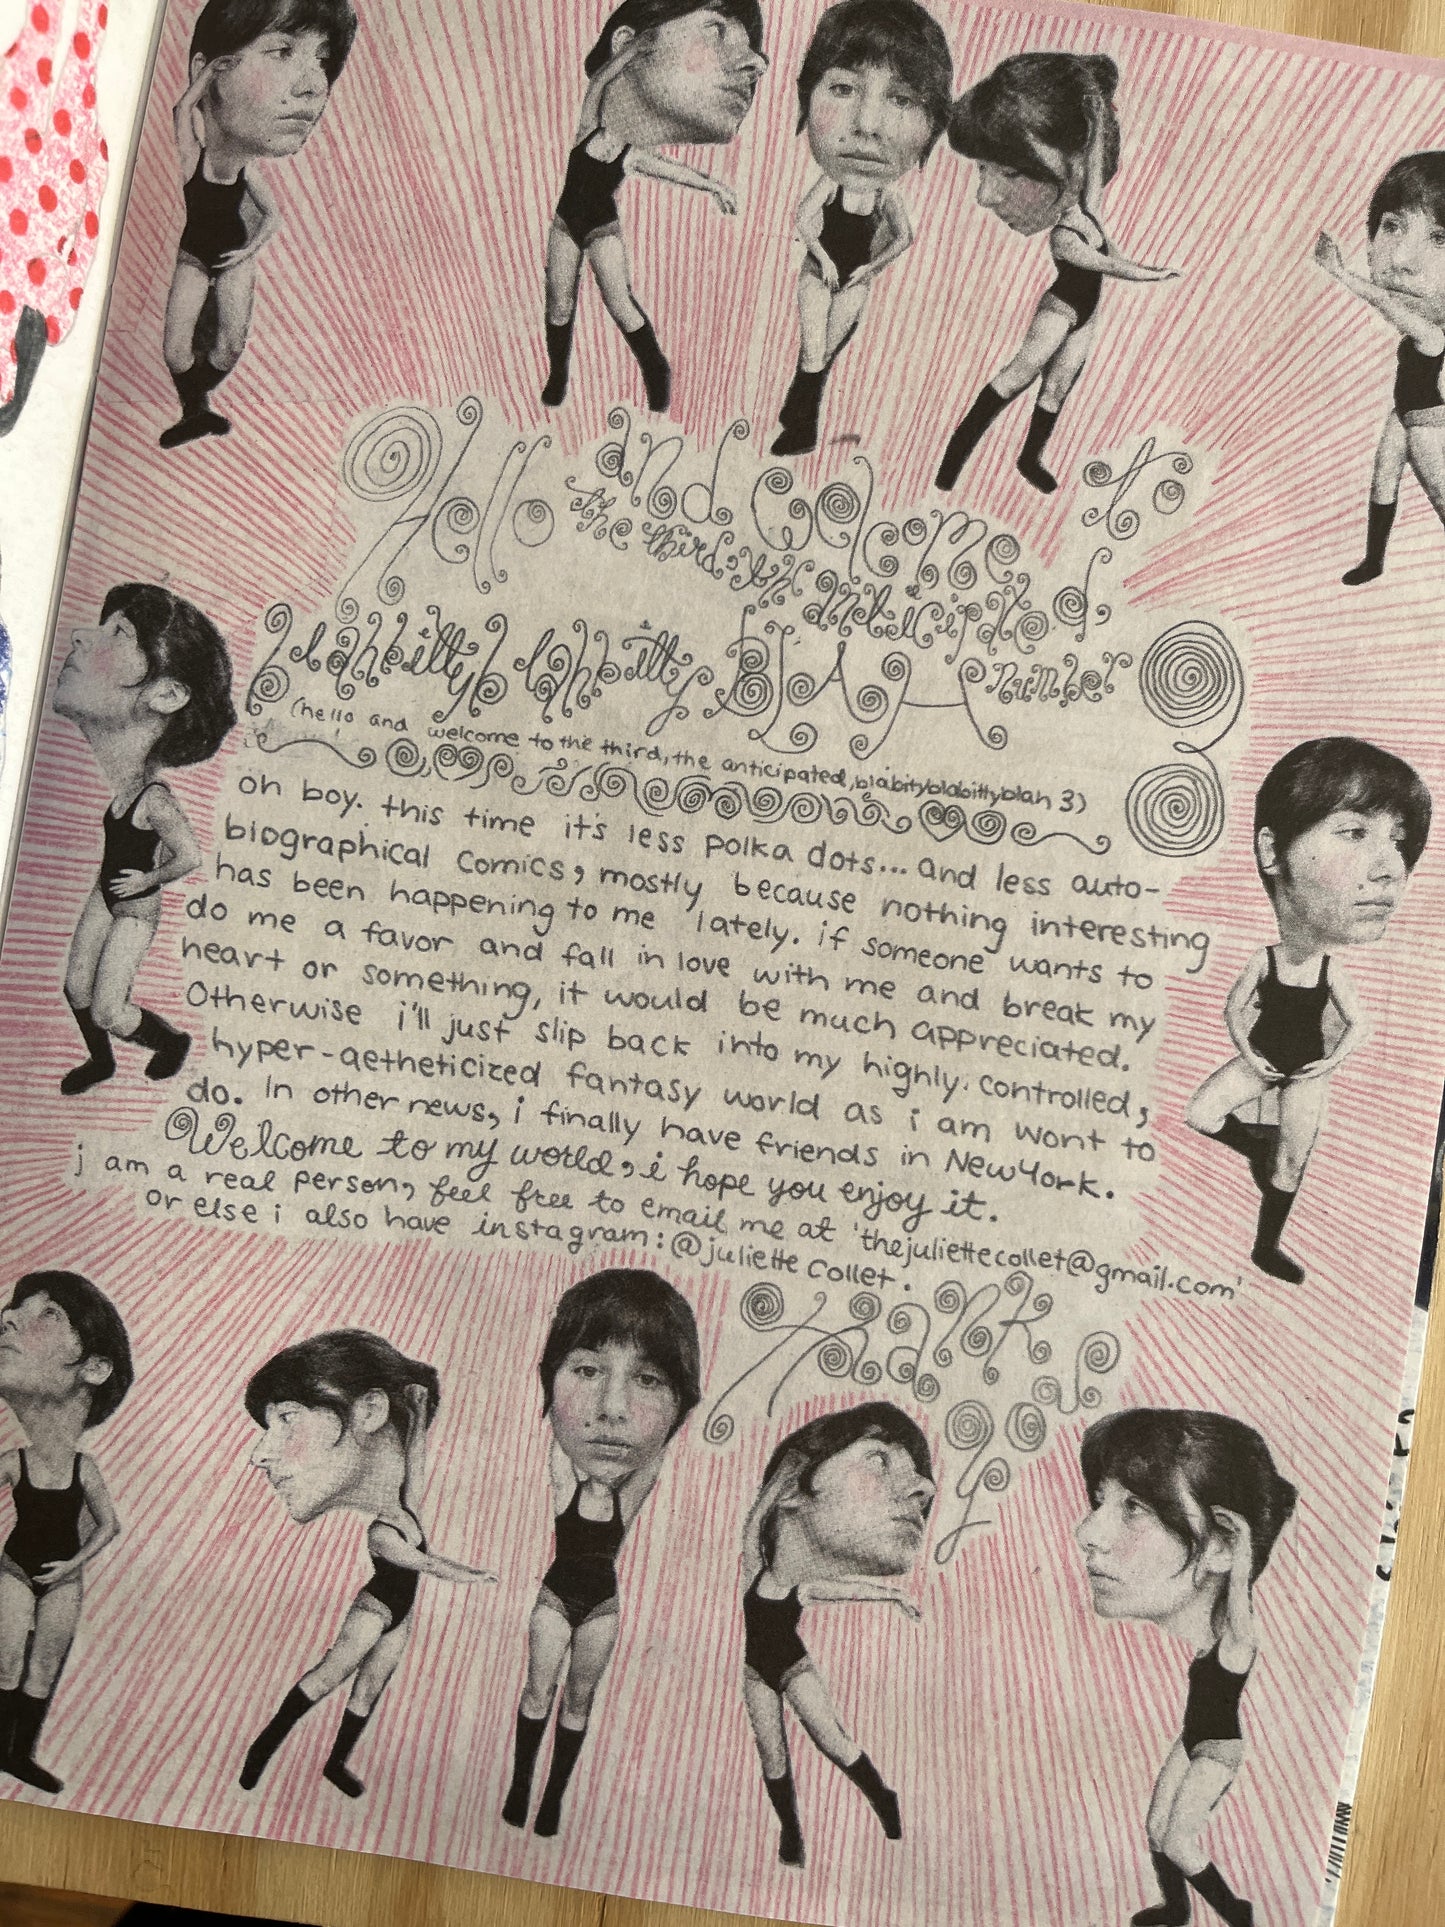 Hello and welcome to
the third, the anticipated,
blahbittyblahbitty BLAH number 3
(hello and welcome to the third, the anticipated, blabityblabittyblah 3)
oh boy. this time it's less polka dots... and less auto-
biographical comics, mostly because nothing interesting
has been happening to me lately. if someone wants to
do me a favor and fall in love with me and break my
heart or something, it would be much appreciated.
Otherwise i'll just slip back into my highly. controlled,
hyper-aetheticized fantasy world as i am wont to
do. In other news, i finally have friends in New York.
Welcome to my world, i hope you enjoy it.
i am a real person, feel free to email me at 'thejuliettecollet@gmail.com'
or else i also have instagram: @juliettecollet.